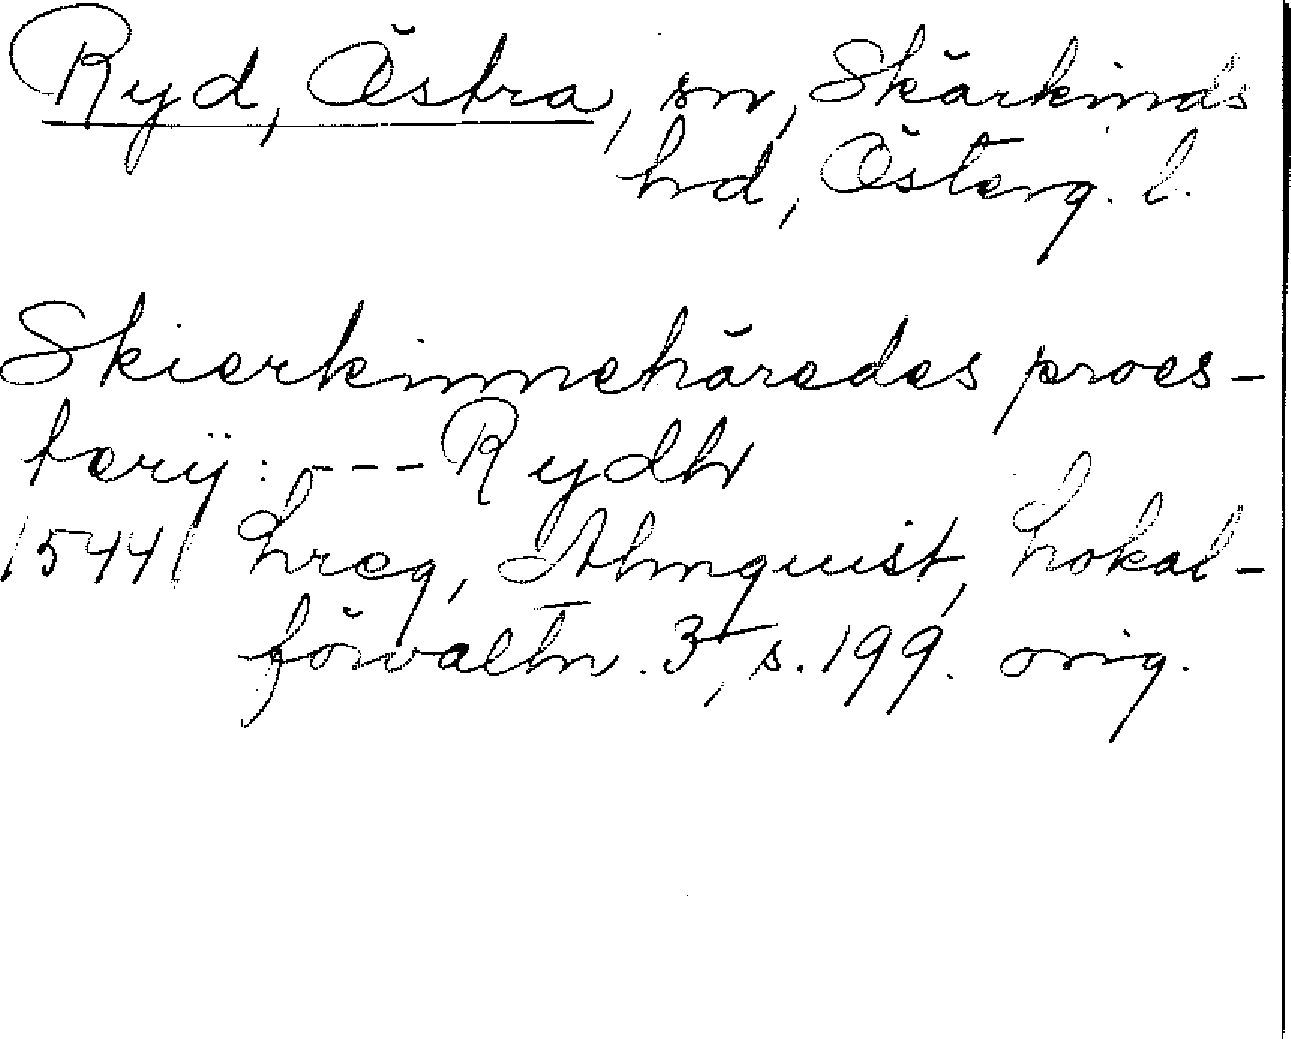 Ryd, Östra, sn, Skärkinds
hd, Österg. l.
Skierkinnehäredes proes-
terij: --- Rydh
1544 Lreg, Almquist, Lokal-
förvaltn. 3, s. 199. orig.